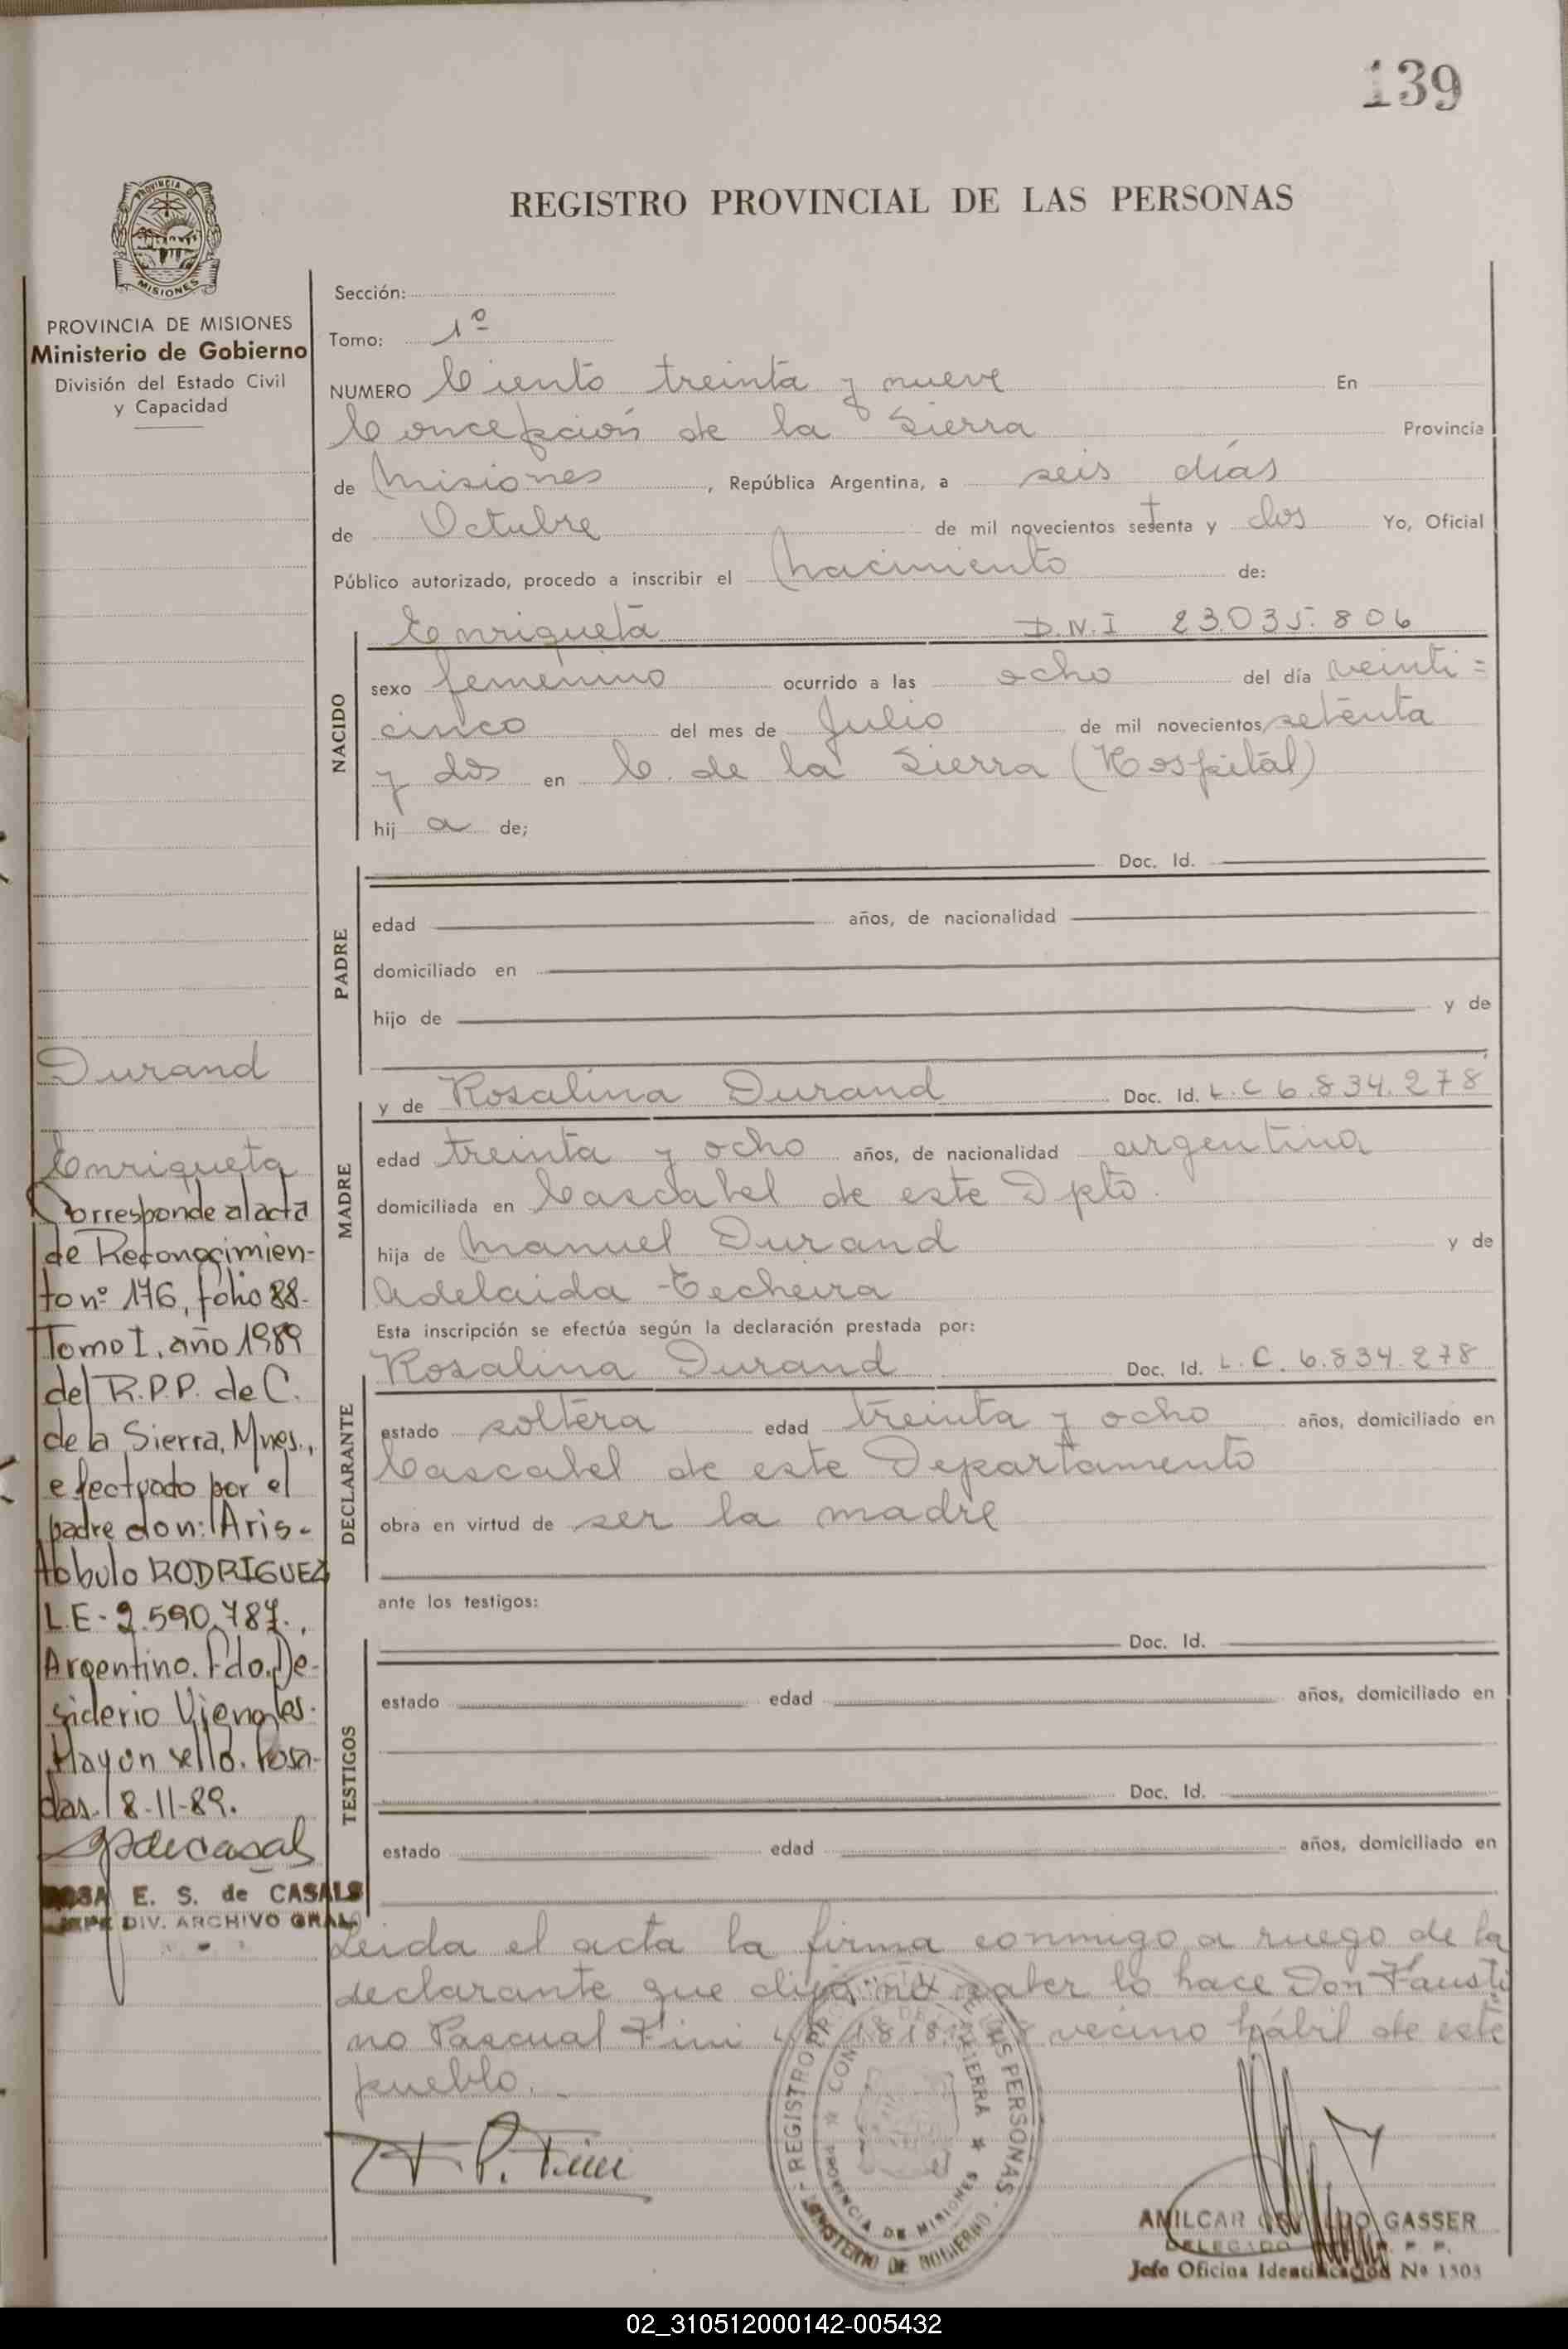 139
REGISTRO PROVINCIAL DE LAS PERSONAS
PROVINCIA DE MISIONES
MISIONES
PROVINCIA DE MISIONES
Ministerio de Gobierno
División del Estado Civil
y Capacidad
Sección:
Tomo: 1º
NUMERO Ciento treinta y nueve En
Concepción de la Sierra Provincia
de Misiones, República Argentina, a seis días
de Octubre de mil novecientos setenta y dos Yo, Oficial
Público autorizado, procedo a inscribir el nacimiento de:
NACIDO
Enriqueta D.N.I 23.035.806
sexo femenino ocurrido a las ocho del día veinti=
cinco del mes de Julio de mil novecientos setenta
y dos en C. de la Sierra (Hospital)
hij a de;
PADRE
Doc. Id.
edad años, de nacionalidad
domiciliado en
hijo de y de
MADRE
y de Rosalina Durand Doc. Id. L.C 6.834.278
edad treinta y ocho años, de nacionalidad argentina
domiciliada en Cascabel de este Dpto.
hija de Manuel Durand y de
Adelaida Techeira
Esta inscripción se efectúa según la declaración prestada por:
DECLARANTE
Rosalina Durand Doc. Id. L.C. 6.834.278
estado soltera edad treinta y ocho años, domiciliado en
Cascabel de este Departamento
obra en virtud de ser la madre
ante los testigos:
TESTIGOS
Doc. Id.
estado edad años, domiciliado en
Doc. Id.
estado edad años, domiciliado en
Leida el acta la firma conmigo a ruego de la
declarante que dijo no saber lo hace Don Fausti
no Pascual Fini vecino hábil de este
pueblo.
F. P. Fini
REGISTRO PROVINCIAL DE LAS PERSONAS
MINISTERIO DE GOBIERNO
PROVINCIA DE MISIONES
AMILCAR GASSER
DELEGADO
Jefe Oficina Identificación Nº 1503
Durand
Enriqueta
Corresponde al acta
de Reconocimien-
to nº 176, folio 88-
Tomo I, año 1989
del R.P.P. de C.
de la Sierra, Mnes.,
efectuado por el
padre don: Aris-
tobulo RODRIGUEZ
L.E- 2.590.787.,
Argentino. Fdo. De-
siderio Viengles.
Hay un sello. Posa-
das. 18-11-89.
ROSA E. S. de CASALS
JEFE DIV. ARCHIVO GRAL.
02_310512000142-005432